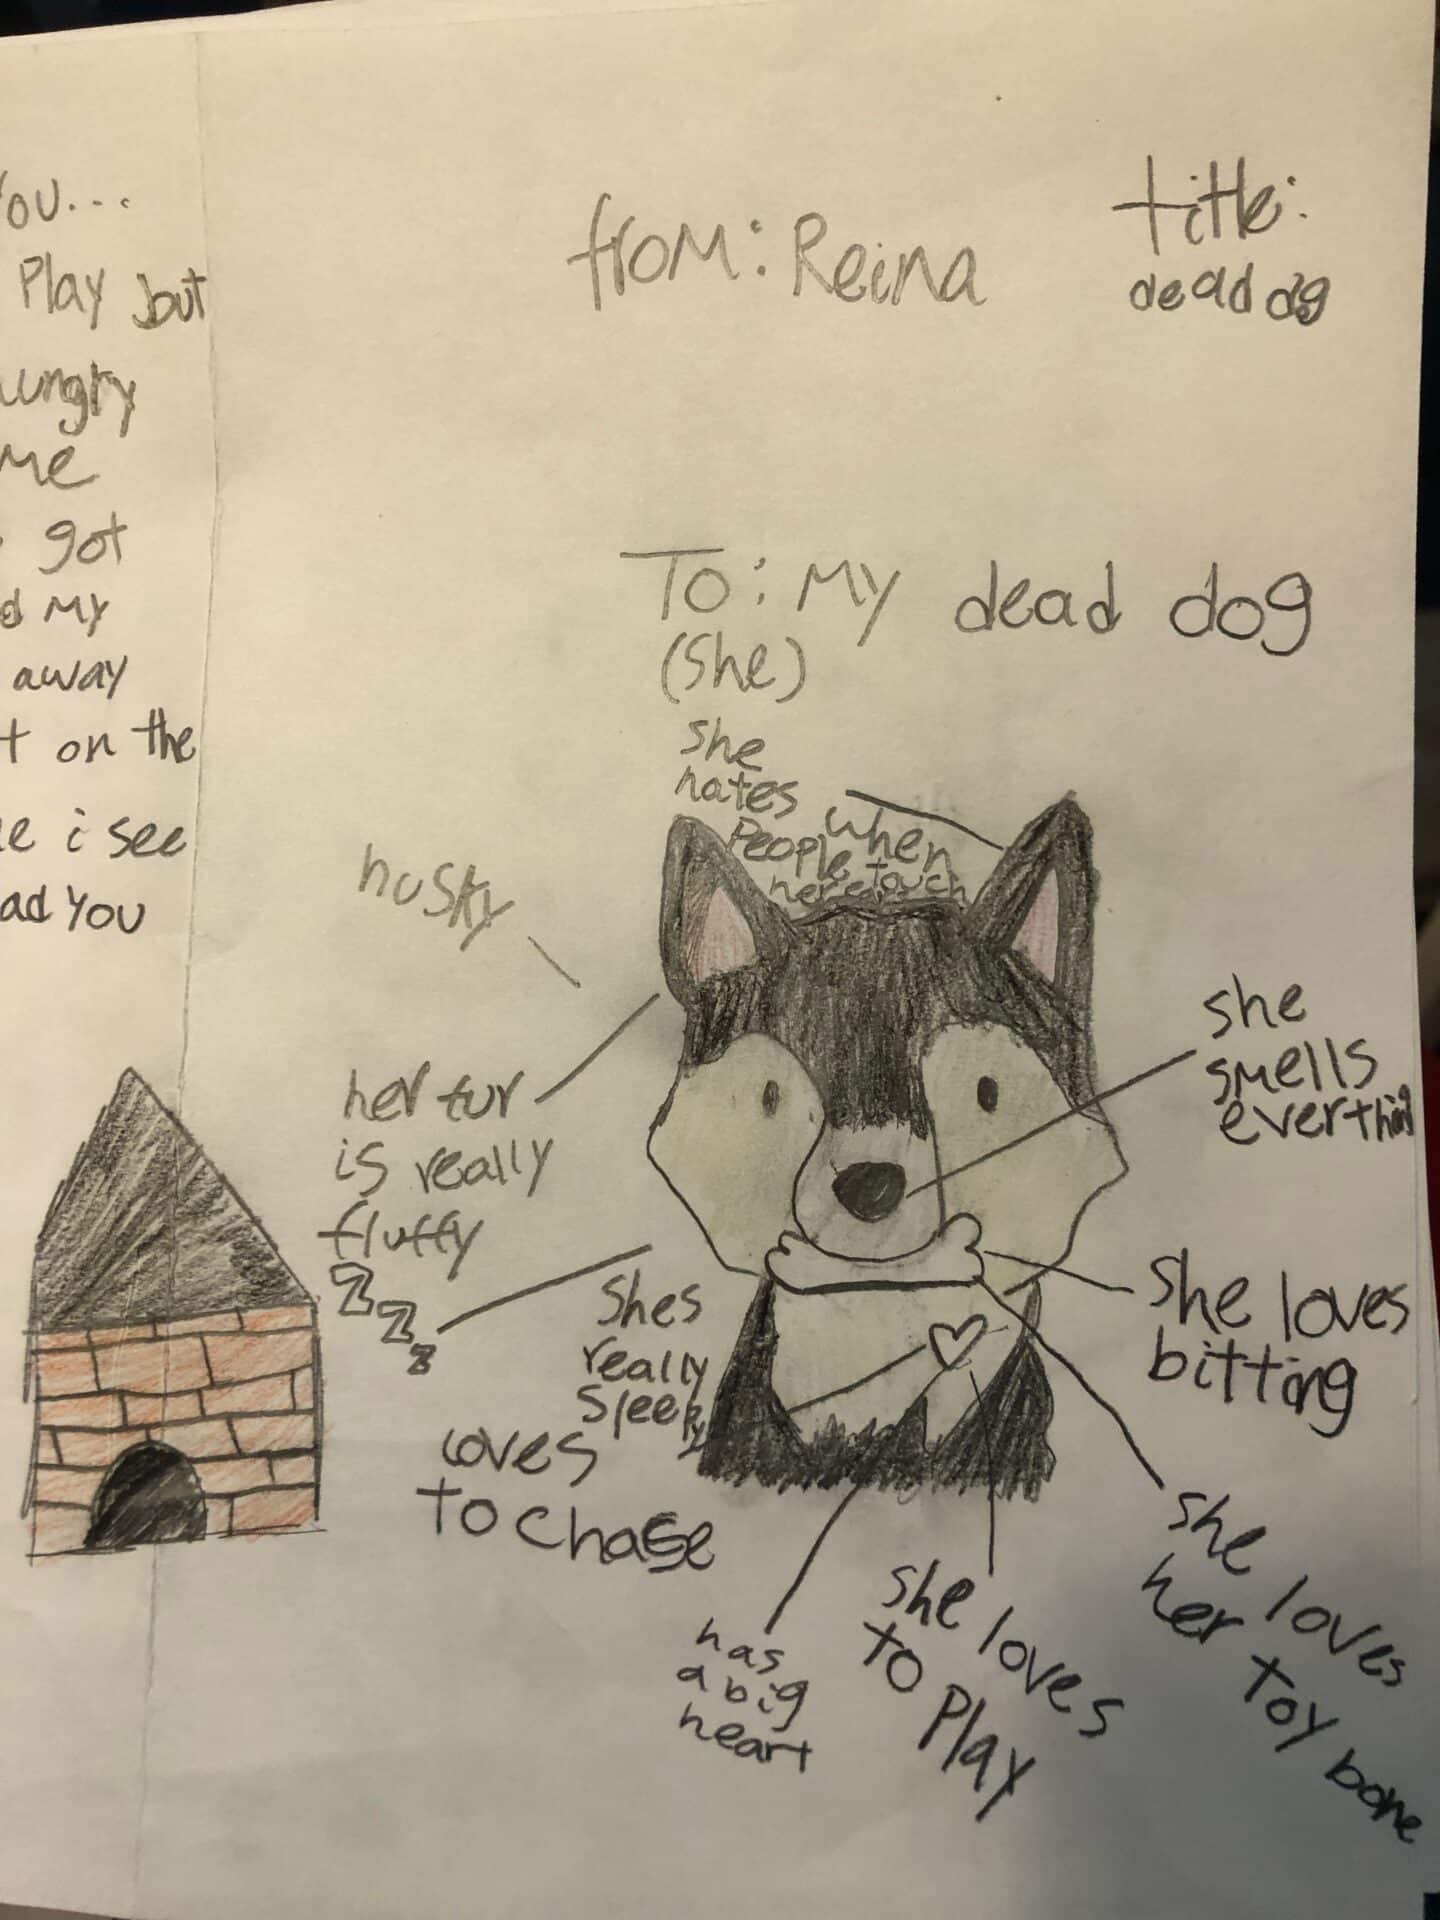 You...
Play but
ungry
me
got
d my
away
t on the
e i see
ad you
from: Reina
title:
dead dg
To: My dead dog
(she)
she
hates
People when
touch
husky
her fur
is really
fluffy
z z z
shes
really
sleepy
loves
to chase
she
smells
everthing
she loves
bitting
she loves
her toy bone
she loves
to Play
has
a big
heart